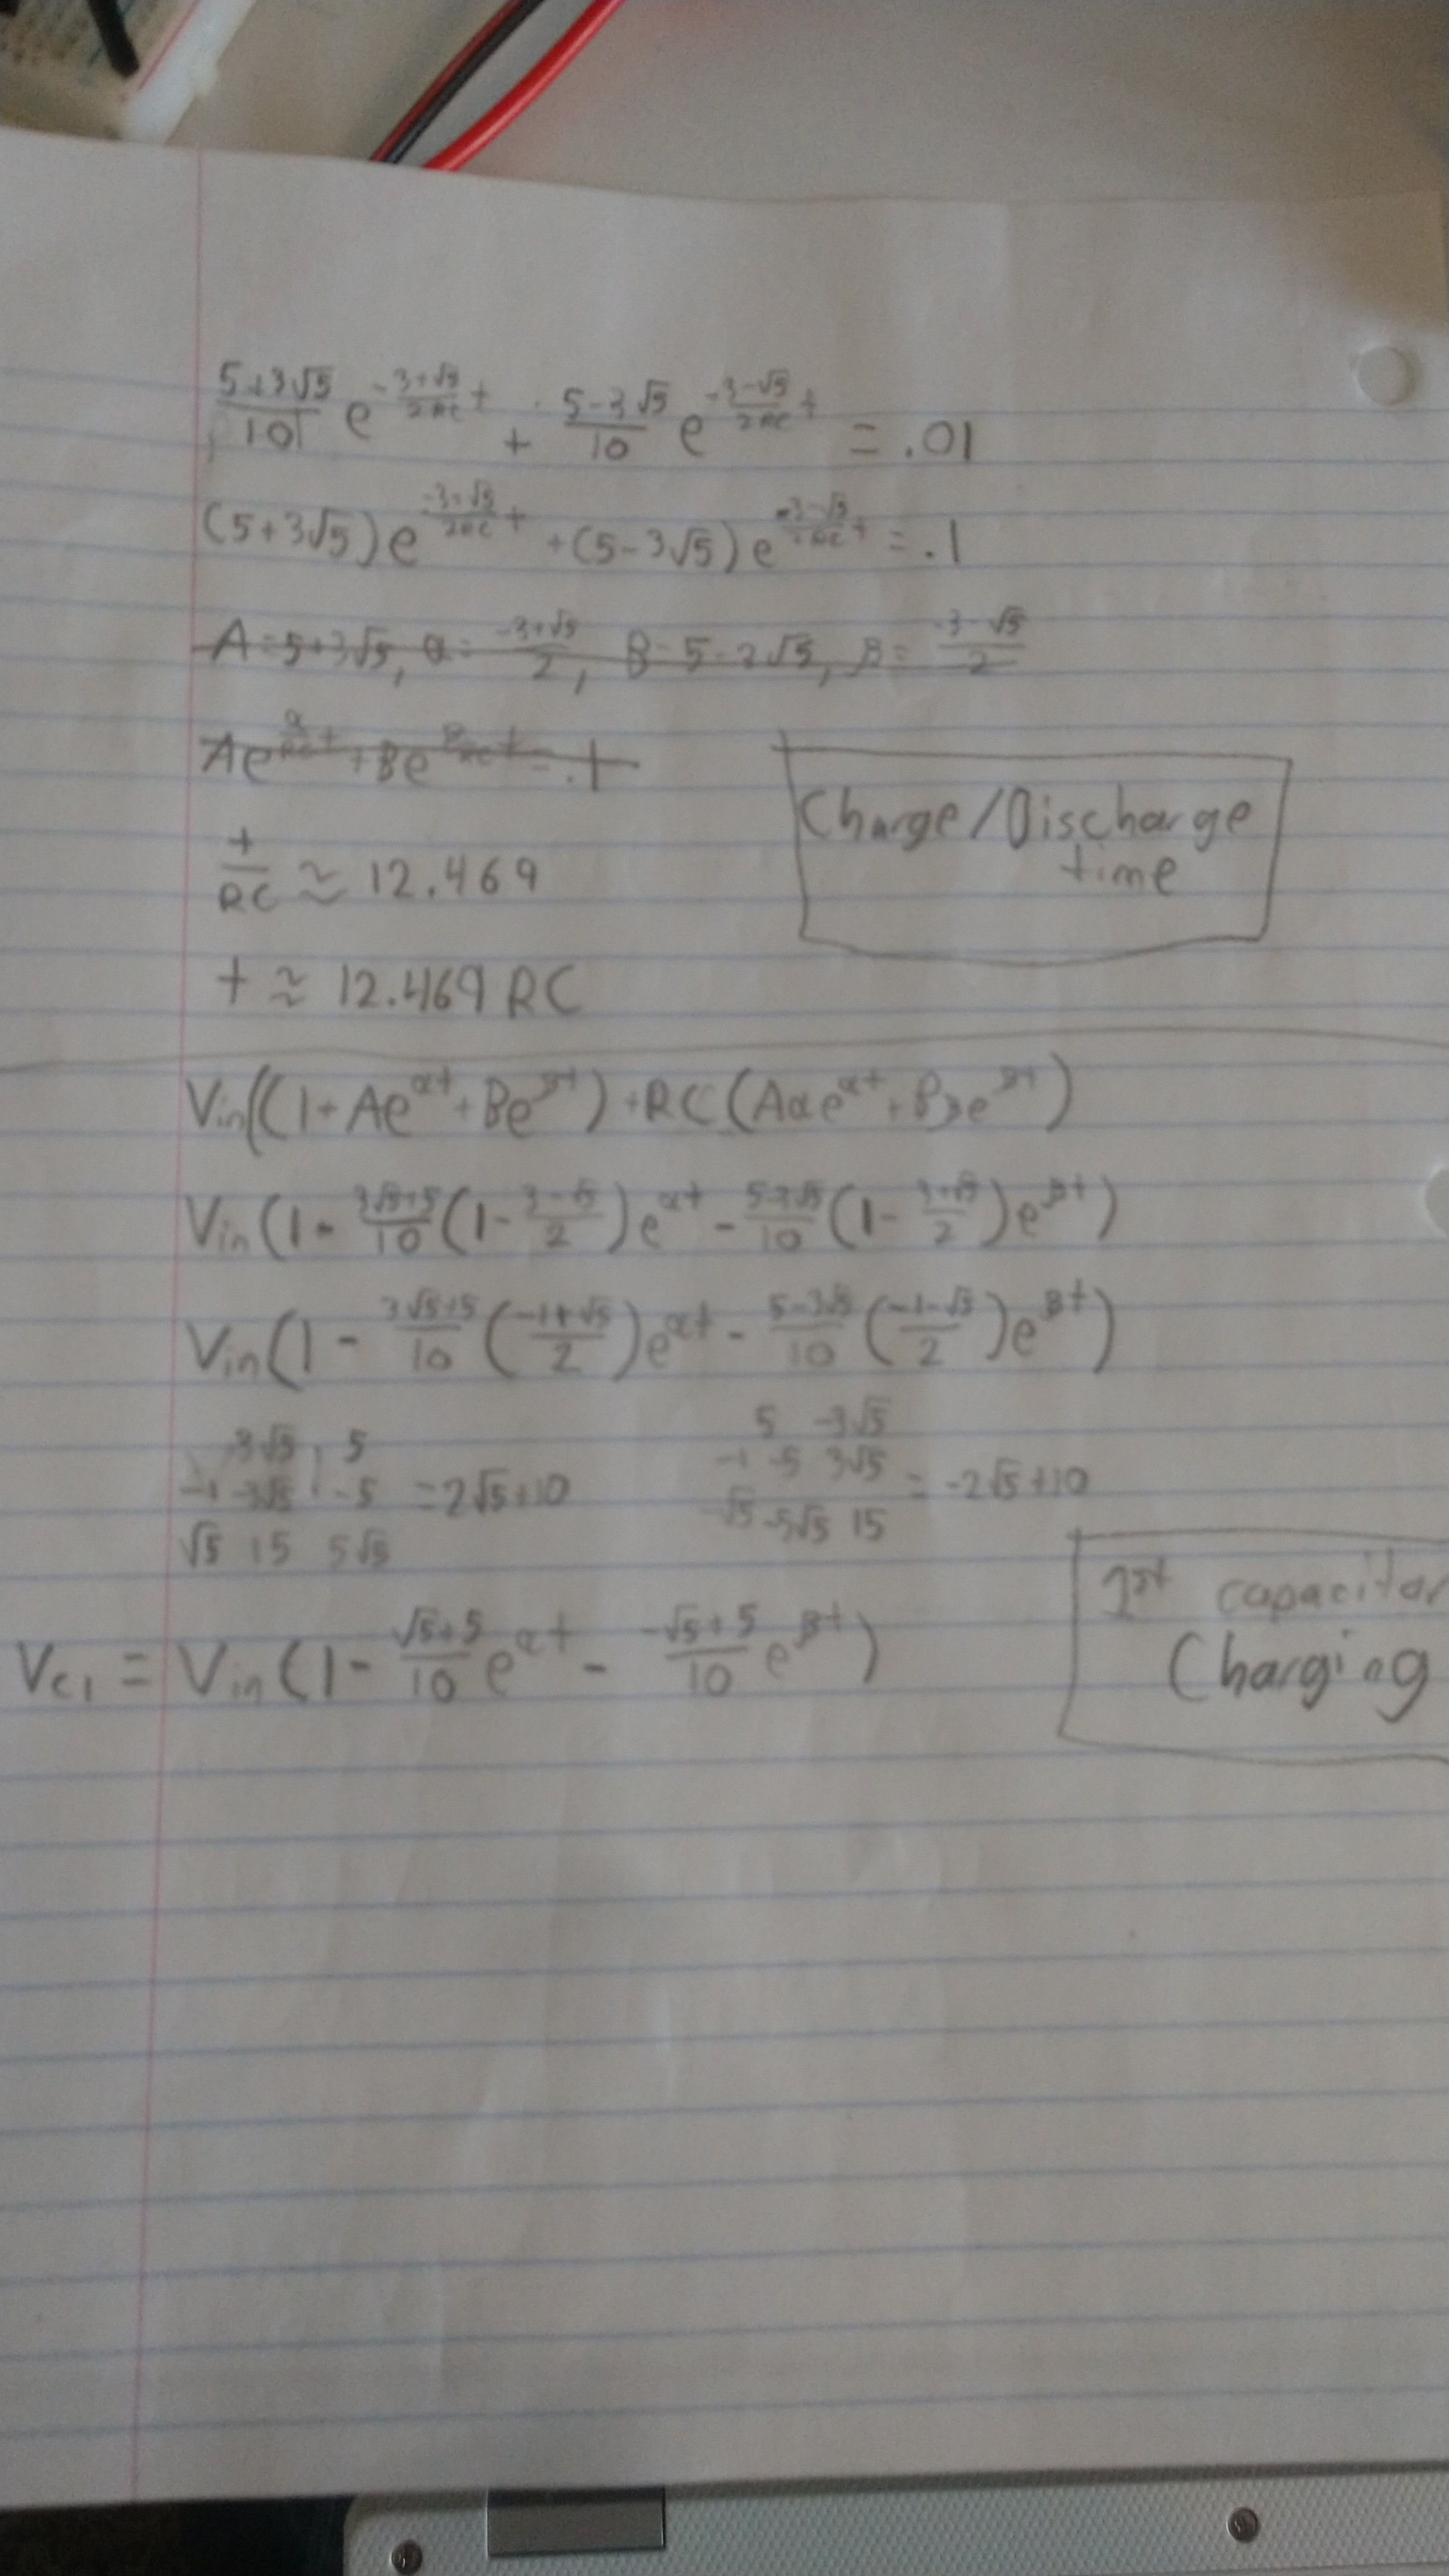 (5+3√5)/10 e^(-3+√5)/2RC t + (5-3√5)/10 e^(-3-√5)/2RC t = .01
(5+3√5)e^(-3+√5)/2RC t + (5-3√5)e^(-3-√5)/2RC t = .1
A=5+3√5, α=(-3+√5)/2, B=5-3√5, β=(-3-√5)/2
Ae^(α/RC t) + Be^(β/RC t) = .1
Charge/Discharge
time
t/RC ≈ 12.469
t ≈ 12.469 RC
Vin((1+Ae^αt+Be^βt)+RC(Aαe^αt+Bβe^βt)
Vin(1-(3√5+5)/10(1-(3-√5)/2)e^αt-(5-3√5)/10(1-(3+√5)/2)e^βt)
Vin(1-(3√5+5)/10((-1+√5)/2)e^αt-(5-3√5)/10((-1-√5)/2)e^βt)
3√5 5
-1 -3√5 -5 =2√5+10
√5 15 5√5
5 -3√5
-1 -5 3√5 = -2√5+10
-√5 -5√5 15
1st capacitor
Charging
Vc1 = Vin(1-(√5+5)/10 e^αt - (-√5+5)/10 e^βt)